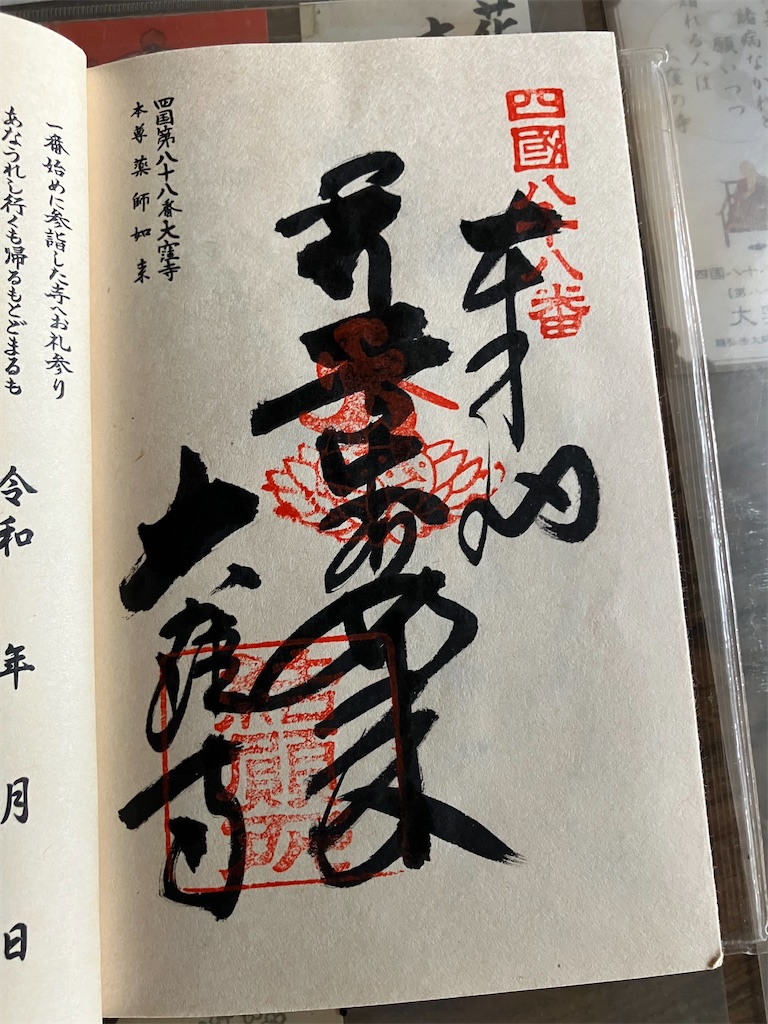 四國八十八番
奉納
薬師如来
大窪寺
結願所
四国第八十八番大窪寺
本尊 薬師如来
一番始めに参詣した寺へお礼参り
あなうれし行くも帰るもとどまるも
令和 年 月 日
花
大
諸病なかれと
願いつつ